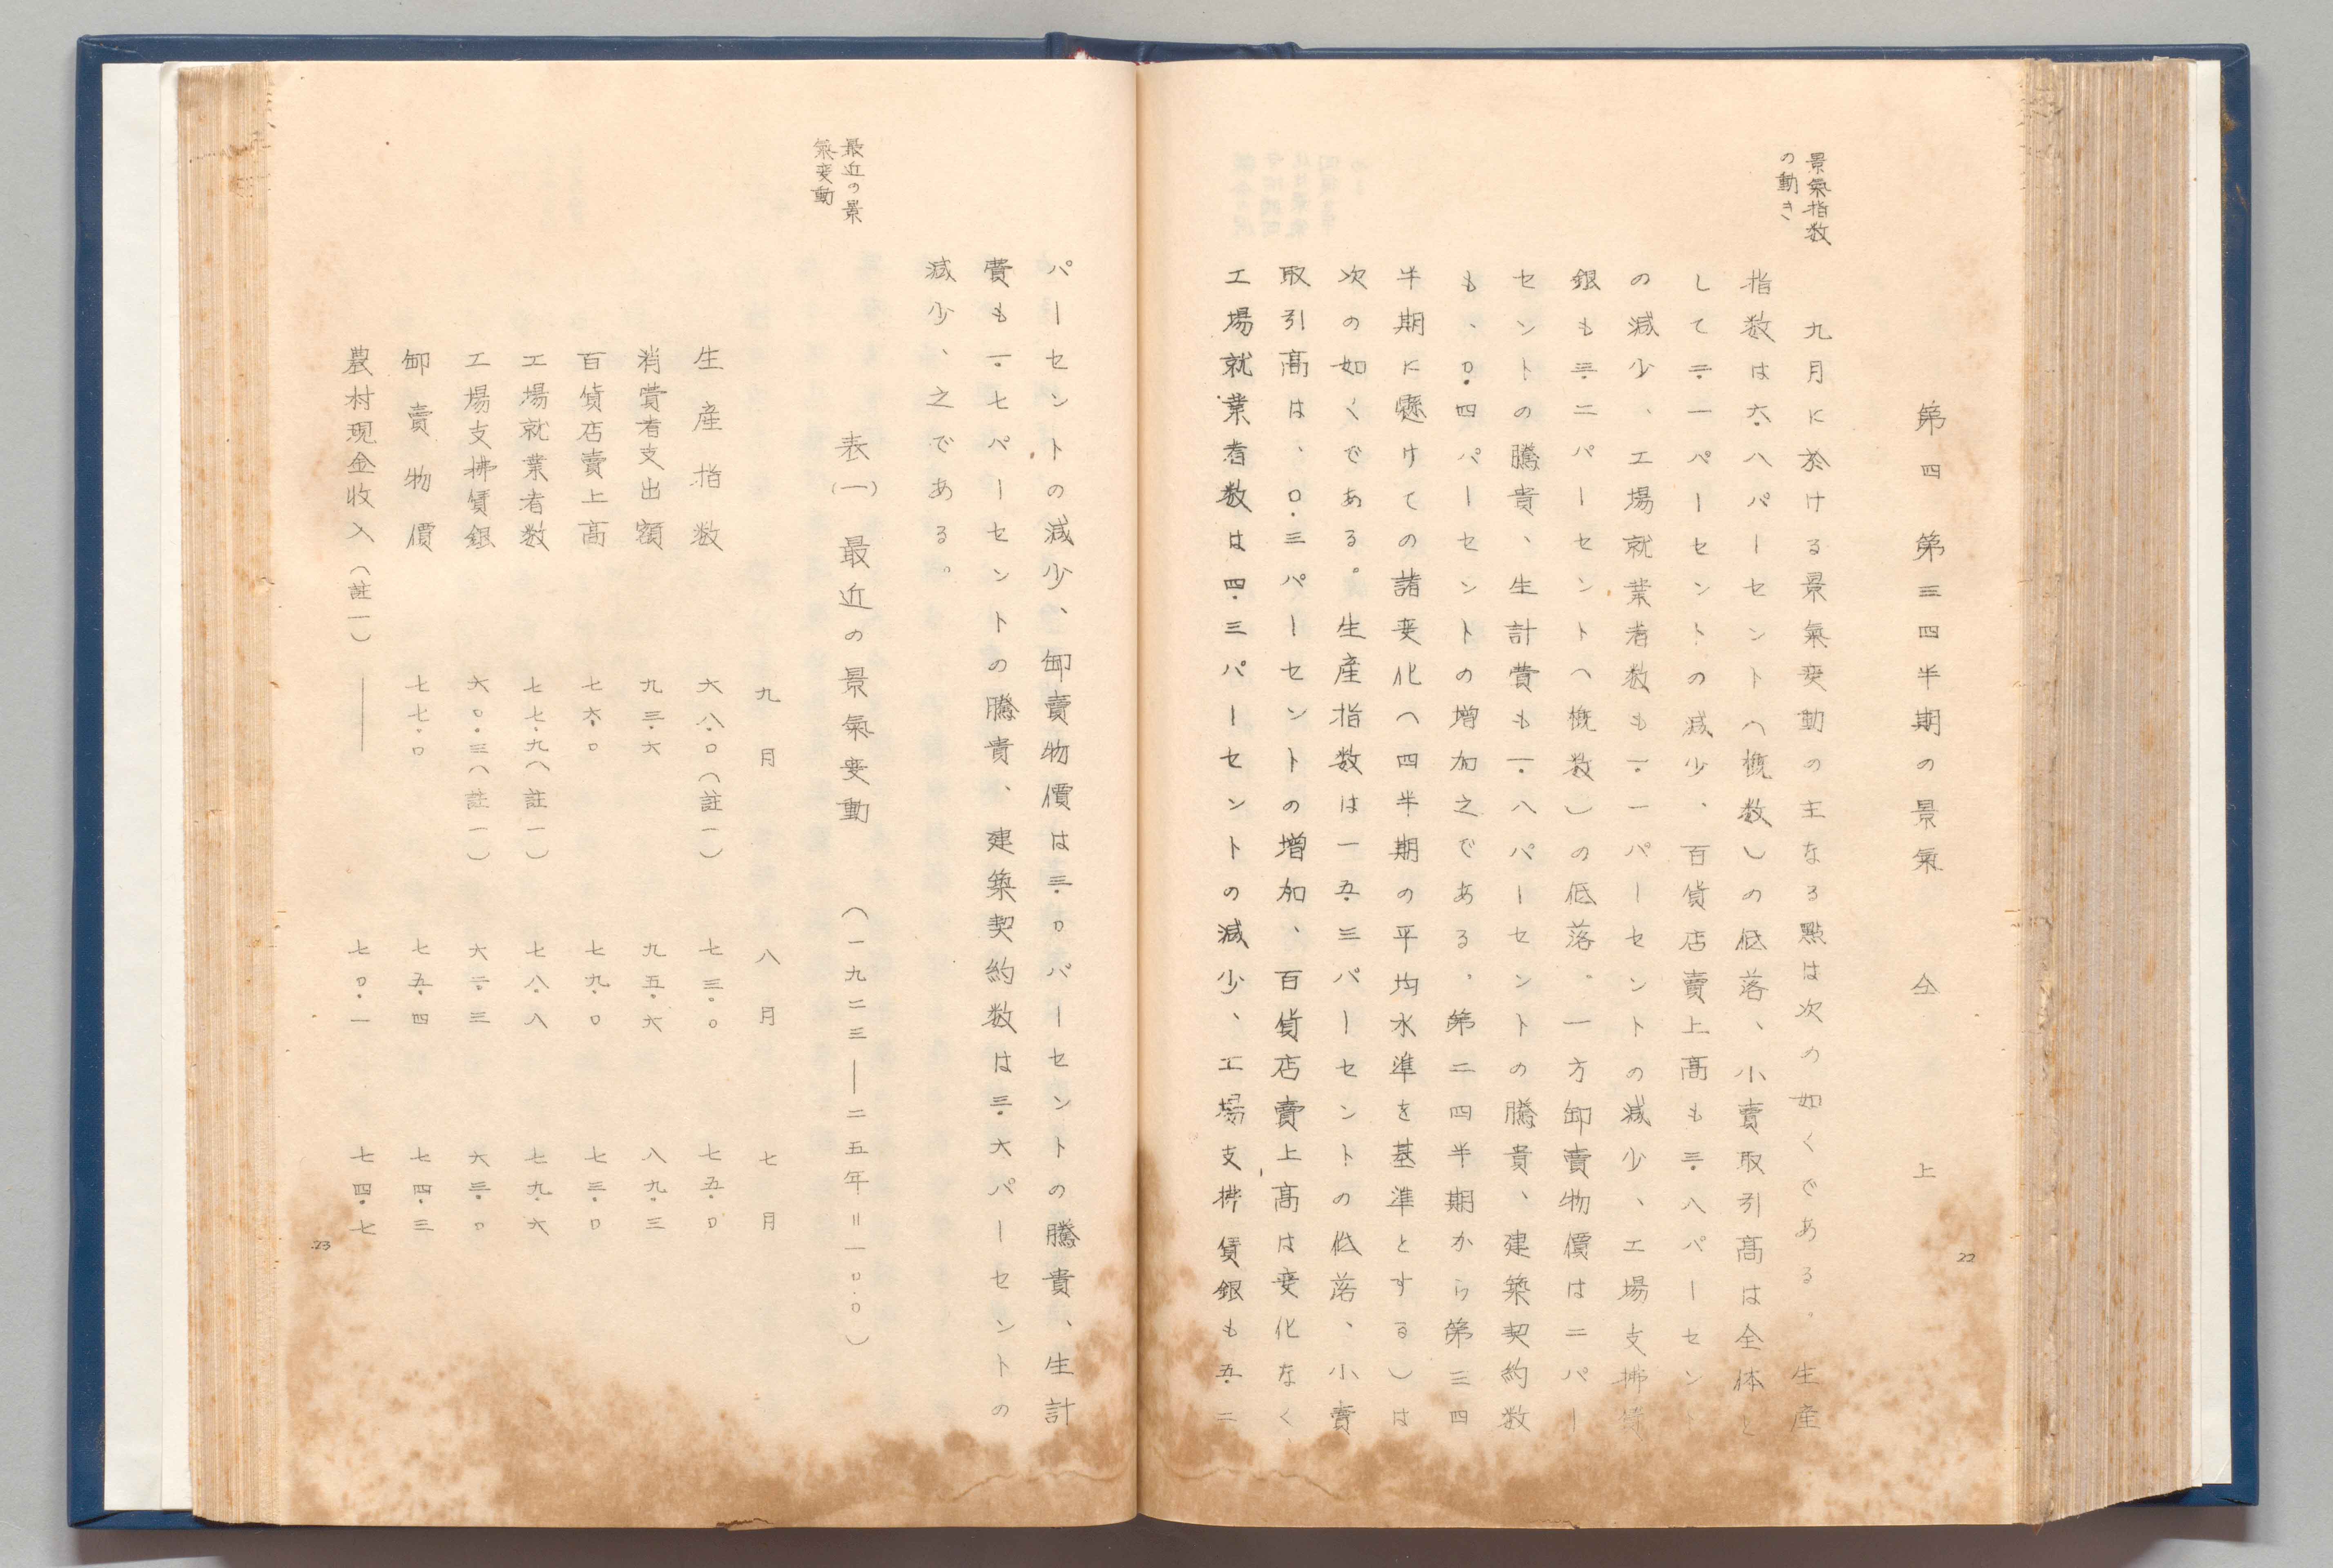 第四　第三四半期の景氣　仝　上
景氣指数
の動き
九月に於ける景氣変動の主なる點は次の如くである。生産
指数は六・八パーセント（概数）の低落、小賣取引高は全体と
して二・一パーセントの減少、百貨店賣上高も三・八パーセント
の減少、工場就業者数も一・一パーセントの減少、工場支拂賃
銀も三・二パーセント（概数）の低落。一方卸賣物價は二パー
セントの騰貴、生計費も一・八パーセントの騰貴、建築契約数
も、〇・四パーセントの増加之である。第二四半期から第三四
半期に懸けての諸変化（四半期の平均水準を基準とする）は
次の如くである。生産指数は一五・三パーセントの低落、小賣
取引高は、〇・三パーセントの増加、百貨店賣上高は変化なく
工場就業者数は四・三パーセントの減少、工場支拂賃銀も五・二
22
パーセントの減少、卸賣物價は三・〇パーセントの騰貴、生計
費も一・七パーセントの騰貴、建築契約数は三・六パーセントの
減少、之である。
最近の景
氣変動
表（一）　最近の景氣変動　（一九二三—二五年＝一〇〇・〇）
九月　八月　七月
生産指数　六八・〇（註一）　七三・〇　七五・〇
消費者支出額　九三・六　九五・六　八九・三
百貨店賣上高　七六・〇　七九・〇　七三・〇
工場就業者数　七七・九（註一）　七八・八　七九・六
工場支拂賃銀　六〇・三（註一）　六二・三　六三・〇
卸賣物價　七七・〇　七五・四　七四・三
農村現金收入（註一）　——　七〇・一　七四・七
23